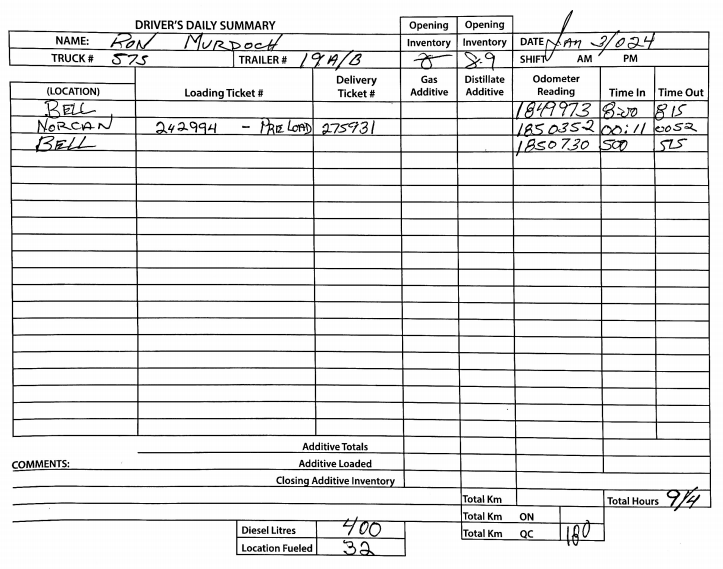 DRIVER'S DAILY SUMMARY Opening Opening
NAME: RON MURDOCH Inventory Inventory DATE JAN 3/024
TRUCK # 575 TRAILER # 19A/B 8.9 SHIFT AM PM
(LOCATION) Loading Ticket # Delivery Ticket # Gas Additive Distillate Additive Odometer Reading Time In Time Out
BELL 1849973 8:00 815
NORCAN 242994 - PRELOAD 275931 1850352 00:11 0052
BELL 1850730 500 515
Additive Totals
COMMENTS: Additive Loaded
Closing Additive Inventory
Total Km Total Hours 9 1/4
Total Km ON
Diesel Litres 400 Total Km QC
Location Fueled 32